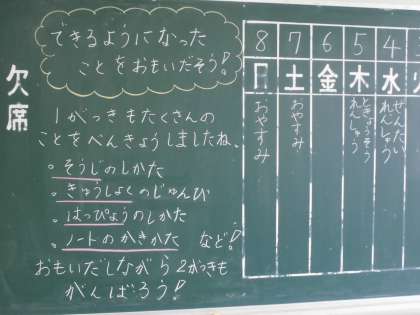 欠席
できるようになった
ことをおもいだそう!
1がっきもたくさんの
ことをべんきょうしましたね。
。そうじのしかた
。きゅうしょくのじゅんび
。はっぴょうのしかた
。ノートのかきかた など!
おもいだしながら2がっきも
がんばろう!
8 7 6 5 4
日 土 金 木 水
おやすみ
おやすみ
ときょうそう
れんしゅう
ぜんたい
れんしゅう